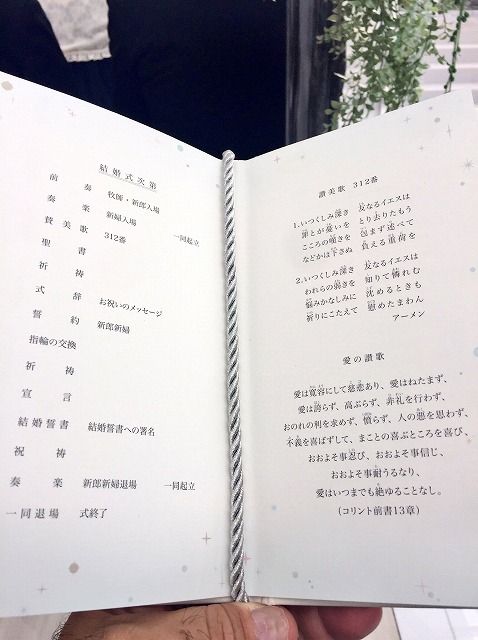 結婚式次第
前奏 牧師・新郎入場
奏楽 新婦入場 一同起立
賛美歌 312番
聖書
祈祷
式辞 お祝いのメッセージ
誓約 新郎新婦
指輪の交換
祈祷
宣言
結婚誓書 結婚誓書への署名
祝祷
奏楽 新郎新婦退場 一同起立
一同退場 式終了
讃美歌 312番
1.いつくしみ深き 友なるイエスは
罪とが憂いを とり去りたもう
こころの嘆きを 包まず述べて
などかは下さぬ 負える重荷を
2.いつくしみ深き 友なるイエスは
われらの弱きを 知りて憐れむ
悩みかなしみに 沈めるときも
祈りにこたえて 慰めたまわん
アーメン
愛の讃歌
愛は寛容にして慈悲あり、愛はねたまず、
愛は誇らず、高ぶらず、非礼を行わず、
おのれの利を求めず、憤らず、人の悪を思わず、
不義を喜ばずして、まことの喜ぶところを喜び、
おおよそ事忍び、おおよそ事信じ、
おおよそ事耐うるなり、
愛はいつまでも絶ゆることなし。
(コリント前書13章)